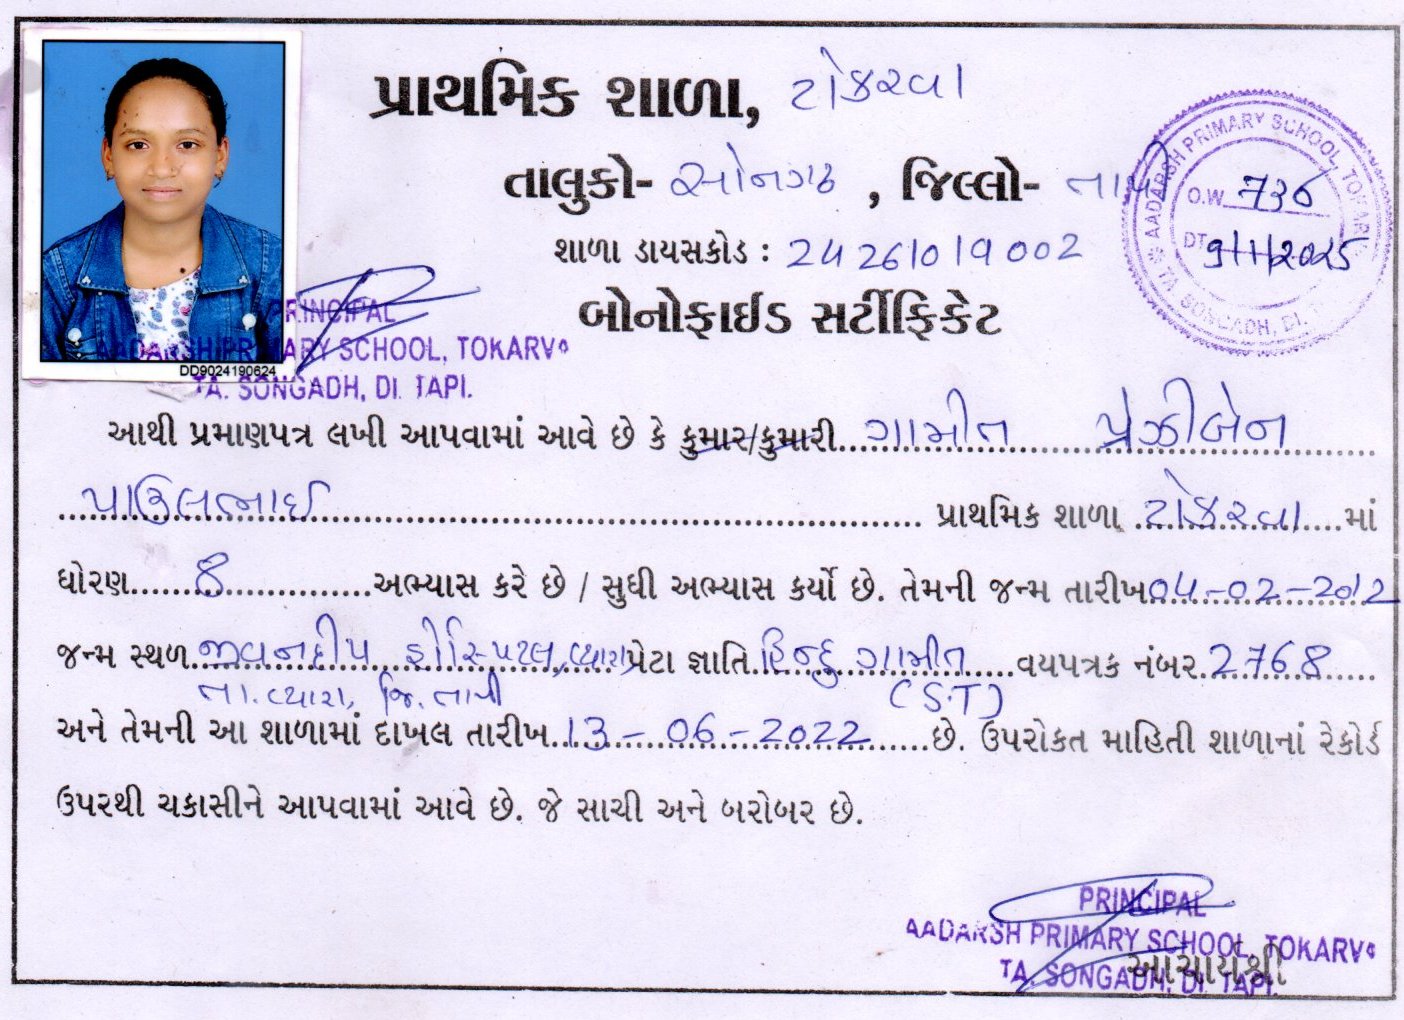 પ્રાથમિક શાળા, ટોકરવા
તાલુકો- સોનગઢ , જિલ્લો- તાપી
શાળા ડાયસકોડ : 24261019002
બોનોફાઈડ સર્ટીફિકેટ
AADARSH PRIMARY SCHOOL, TOKARVA
O.W. 736
DT. 9/1/2025
TA. SONGADH, DI. T
DD9024190624
PRINCIPAL
AADARSH PRIMARY SCHOOL, TOKARVA
TA. SONGADH, DI. TAPI.
આથી પ્રમાણપત્ર લખી આપવામાં આવે છે કે કુમાર/કુમારી ગામીત પ્રેઝીબેન
પાઉલભાઈ પ્રાથમિક શાળા ટોકરવા માં
ધોરણ 8 અભ્યાસ કરે છે / સુધી અભ્યાસ કર્યો છે. તેમની જન્મ તારીખ 04-02-2012
જન્મ સ્થળ જીવનદીપ હોસ્પિટલ, વ્યારા પેટા જ્ઞાતિ હિન્દુ ગામીત વયપત્રક નંબર 2768
તા. વ્યારા, જિ. તાપી (S.T)
અને તેમની આ શાળામાં દાખલ તારીખ 13-06-2022 છે. ઉપરોકત માહિતી શાળાનાં રેકોર્ડ
ઉપરથી ચકાસીને આપવામાં આવે છે. જે સાચી અને બરોબર છે.
PRINCIPAL
AADARSH PRIMARY SCHOOL, TOKARVA
આચાર્યશ્રી
TA. SONGADH, DI. TAPI.